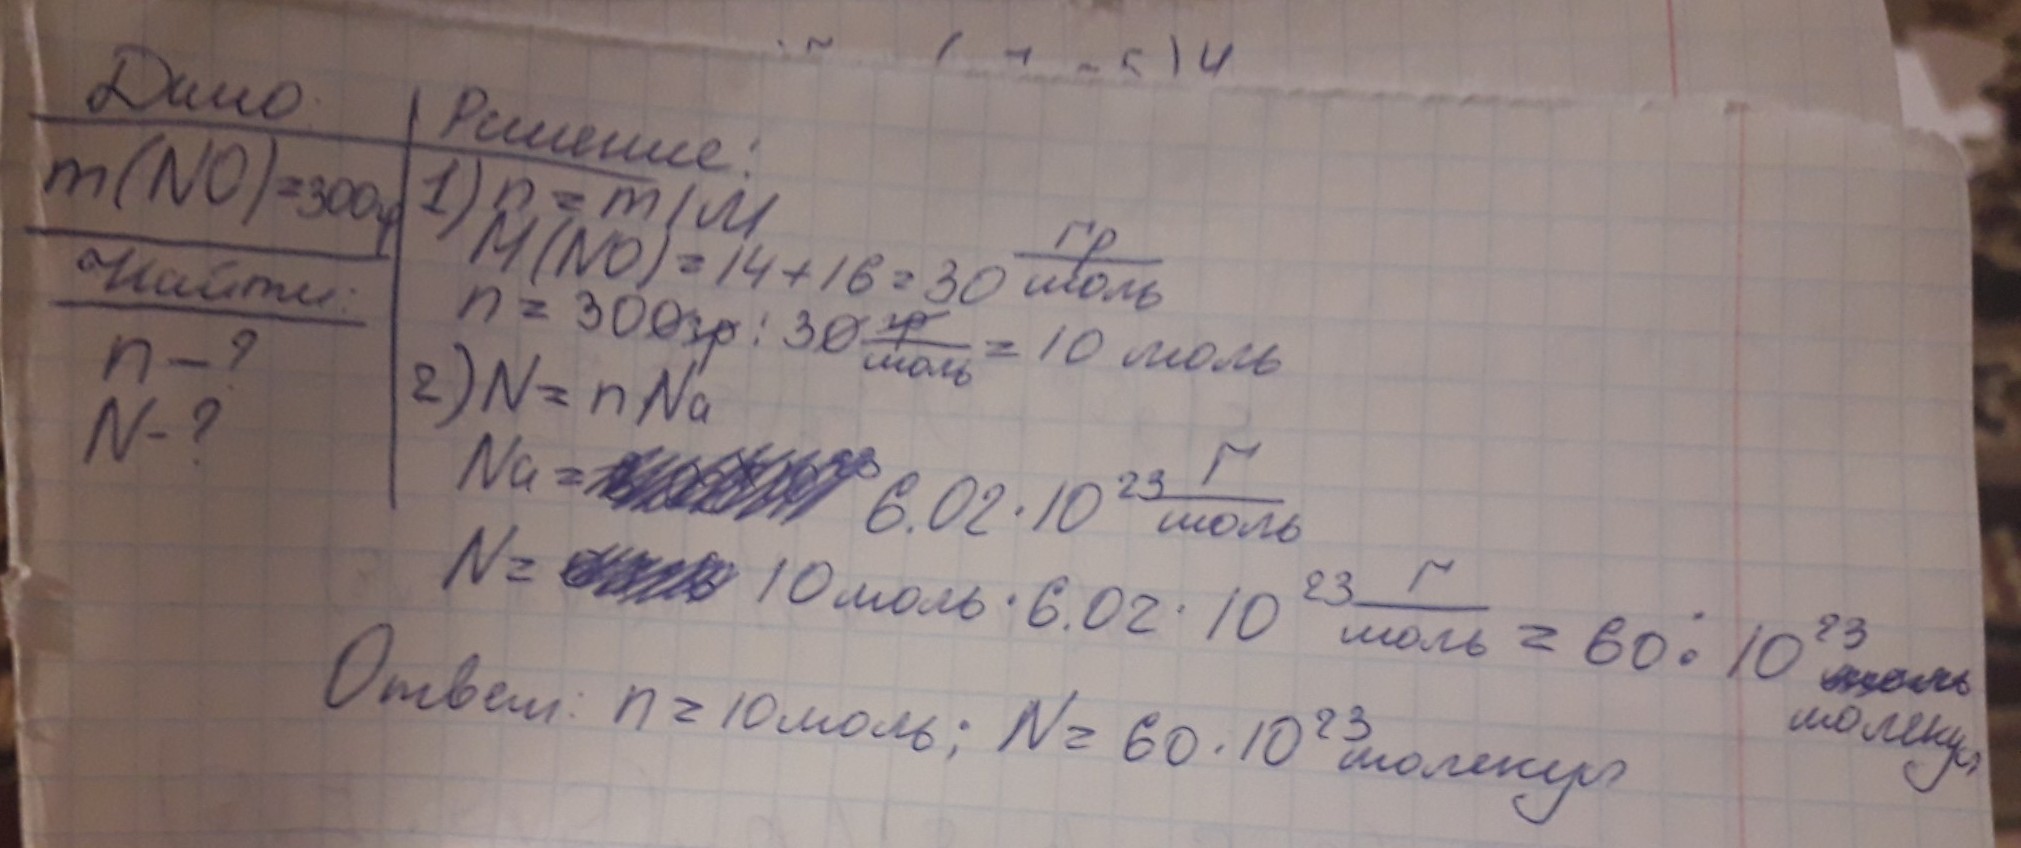 Дано:
m(NO)=300гр
Найти:
n-?
N-?
Решение:
1) n = m/M
M(NO)=14+16=30 гр/моль
n = 300гр : 30 гр/моль = 10 моль
2) N = nNa
Na = 6.02·10²³ г/моль
N = 10 моль · 6.02 · 10²³ г/моль = 60 · 10²³
молекул
Ответ: n=10моль; N=60·10²³ молекул